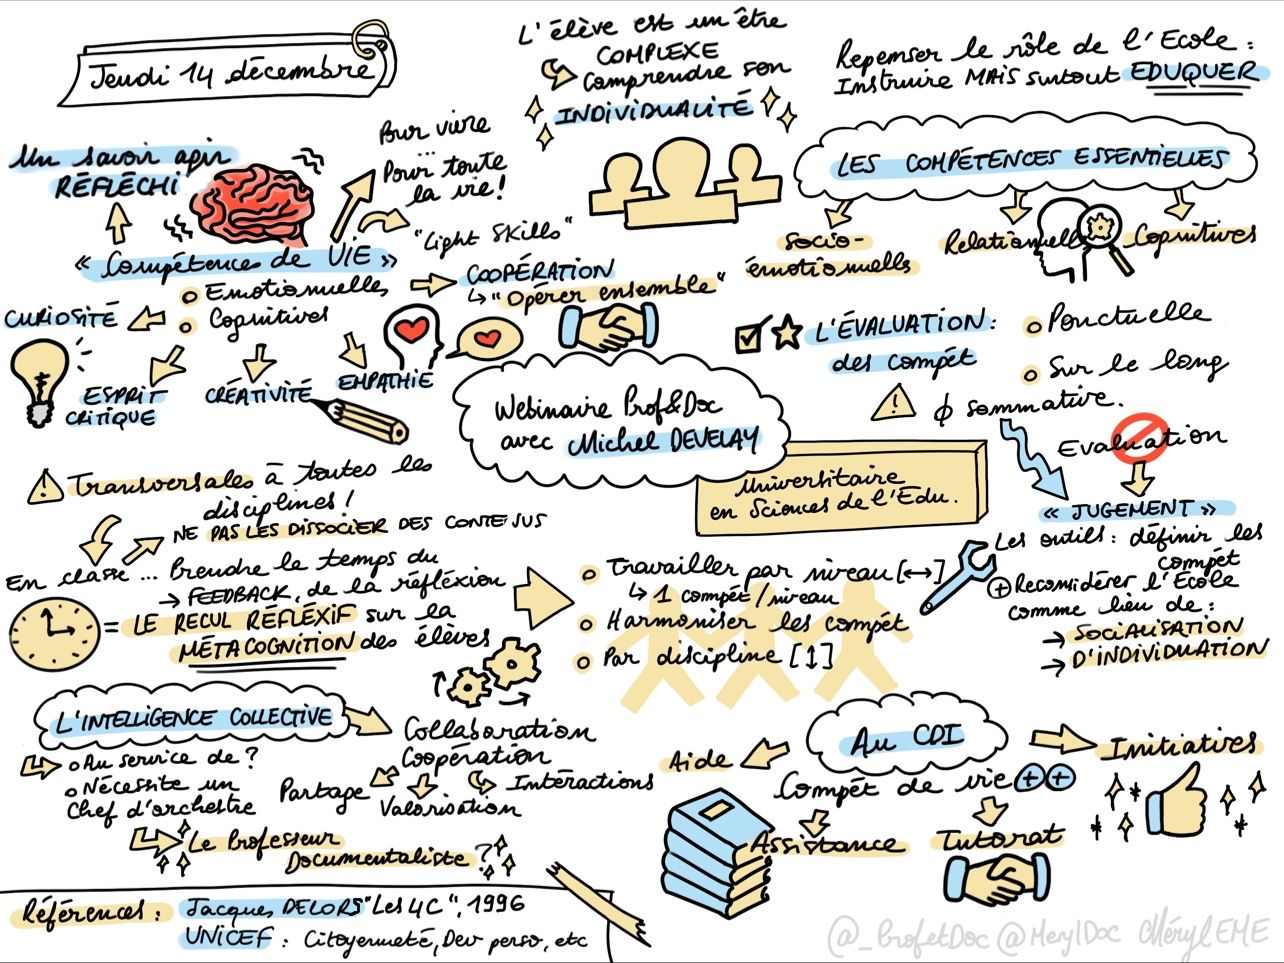 Jeudi 14 décembre
L'élève est un être
COMPLEXE
Comprendre son
INDIVIDUALITÉ
Repenser le rôle de l'Ecole :
Instruire MAIS surtout EDUQUER
Un savoir agir
RÉFLÉCHI
Pour vivre
...
Pour toute
la vie !
"Light Skills"
« Compétence de VIE »
Emotionnelles
Cognitives
CURIOSITÉ
ESPRIT
CRITIQUE
CRÉATIVITÉ
EMPATHIE
COOPÉRATION
"Opérer ensemble"
LES COMPÉTENCES ESSENTIELLES
Socio-
émotionnelles
Relationnelles
Cognitives
L'ÉVALUATION :
des compét
Ponctuelle
Sur le long
ϕ sommative.
Evaluation
« JUGEMENT »
Les outils : définir les
compét
+ Reconsidérer l'Ecole
comme lieu de :
→ SOCIALISATION
→ D'INDIVIDUATION
Webinaire Prof&Doc
avec Michel DEVELAY
Universitaire
en Sciences de l'Edu.
Transversales à toutes les
disciplines !
NE PAS LES DISSOCIER DES CONTENUS
En classe ... Prendre le temps du
→ FEEDBACK, de la réflexion
= LE RECUL RÉFLÉXIF sur la
MÉTACOGNITION des élèves
Travailler par niveau [↔]
↳ 1 compét/niveau
Harmoniser les compét
Par discipline [↕]
L'INTELLIGENCE COLLECTIVE
Au service de ?
Nécessite un
Chef d'orchestre
Le Professeur
Documentaliste ?
Collaboration
Coopération
Partage
Valorisation
Intéractions
Au CDI
Compét de vie ++
Aide
Assistance
Tutorat
Initiatives
Références : Jacques DELORS "Les 4C", 1996
UNICEF : Citoyenneté, Dev perso, etc
@_ProfetDoc @MerylDoc MérylEME